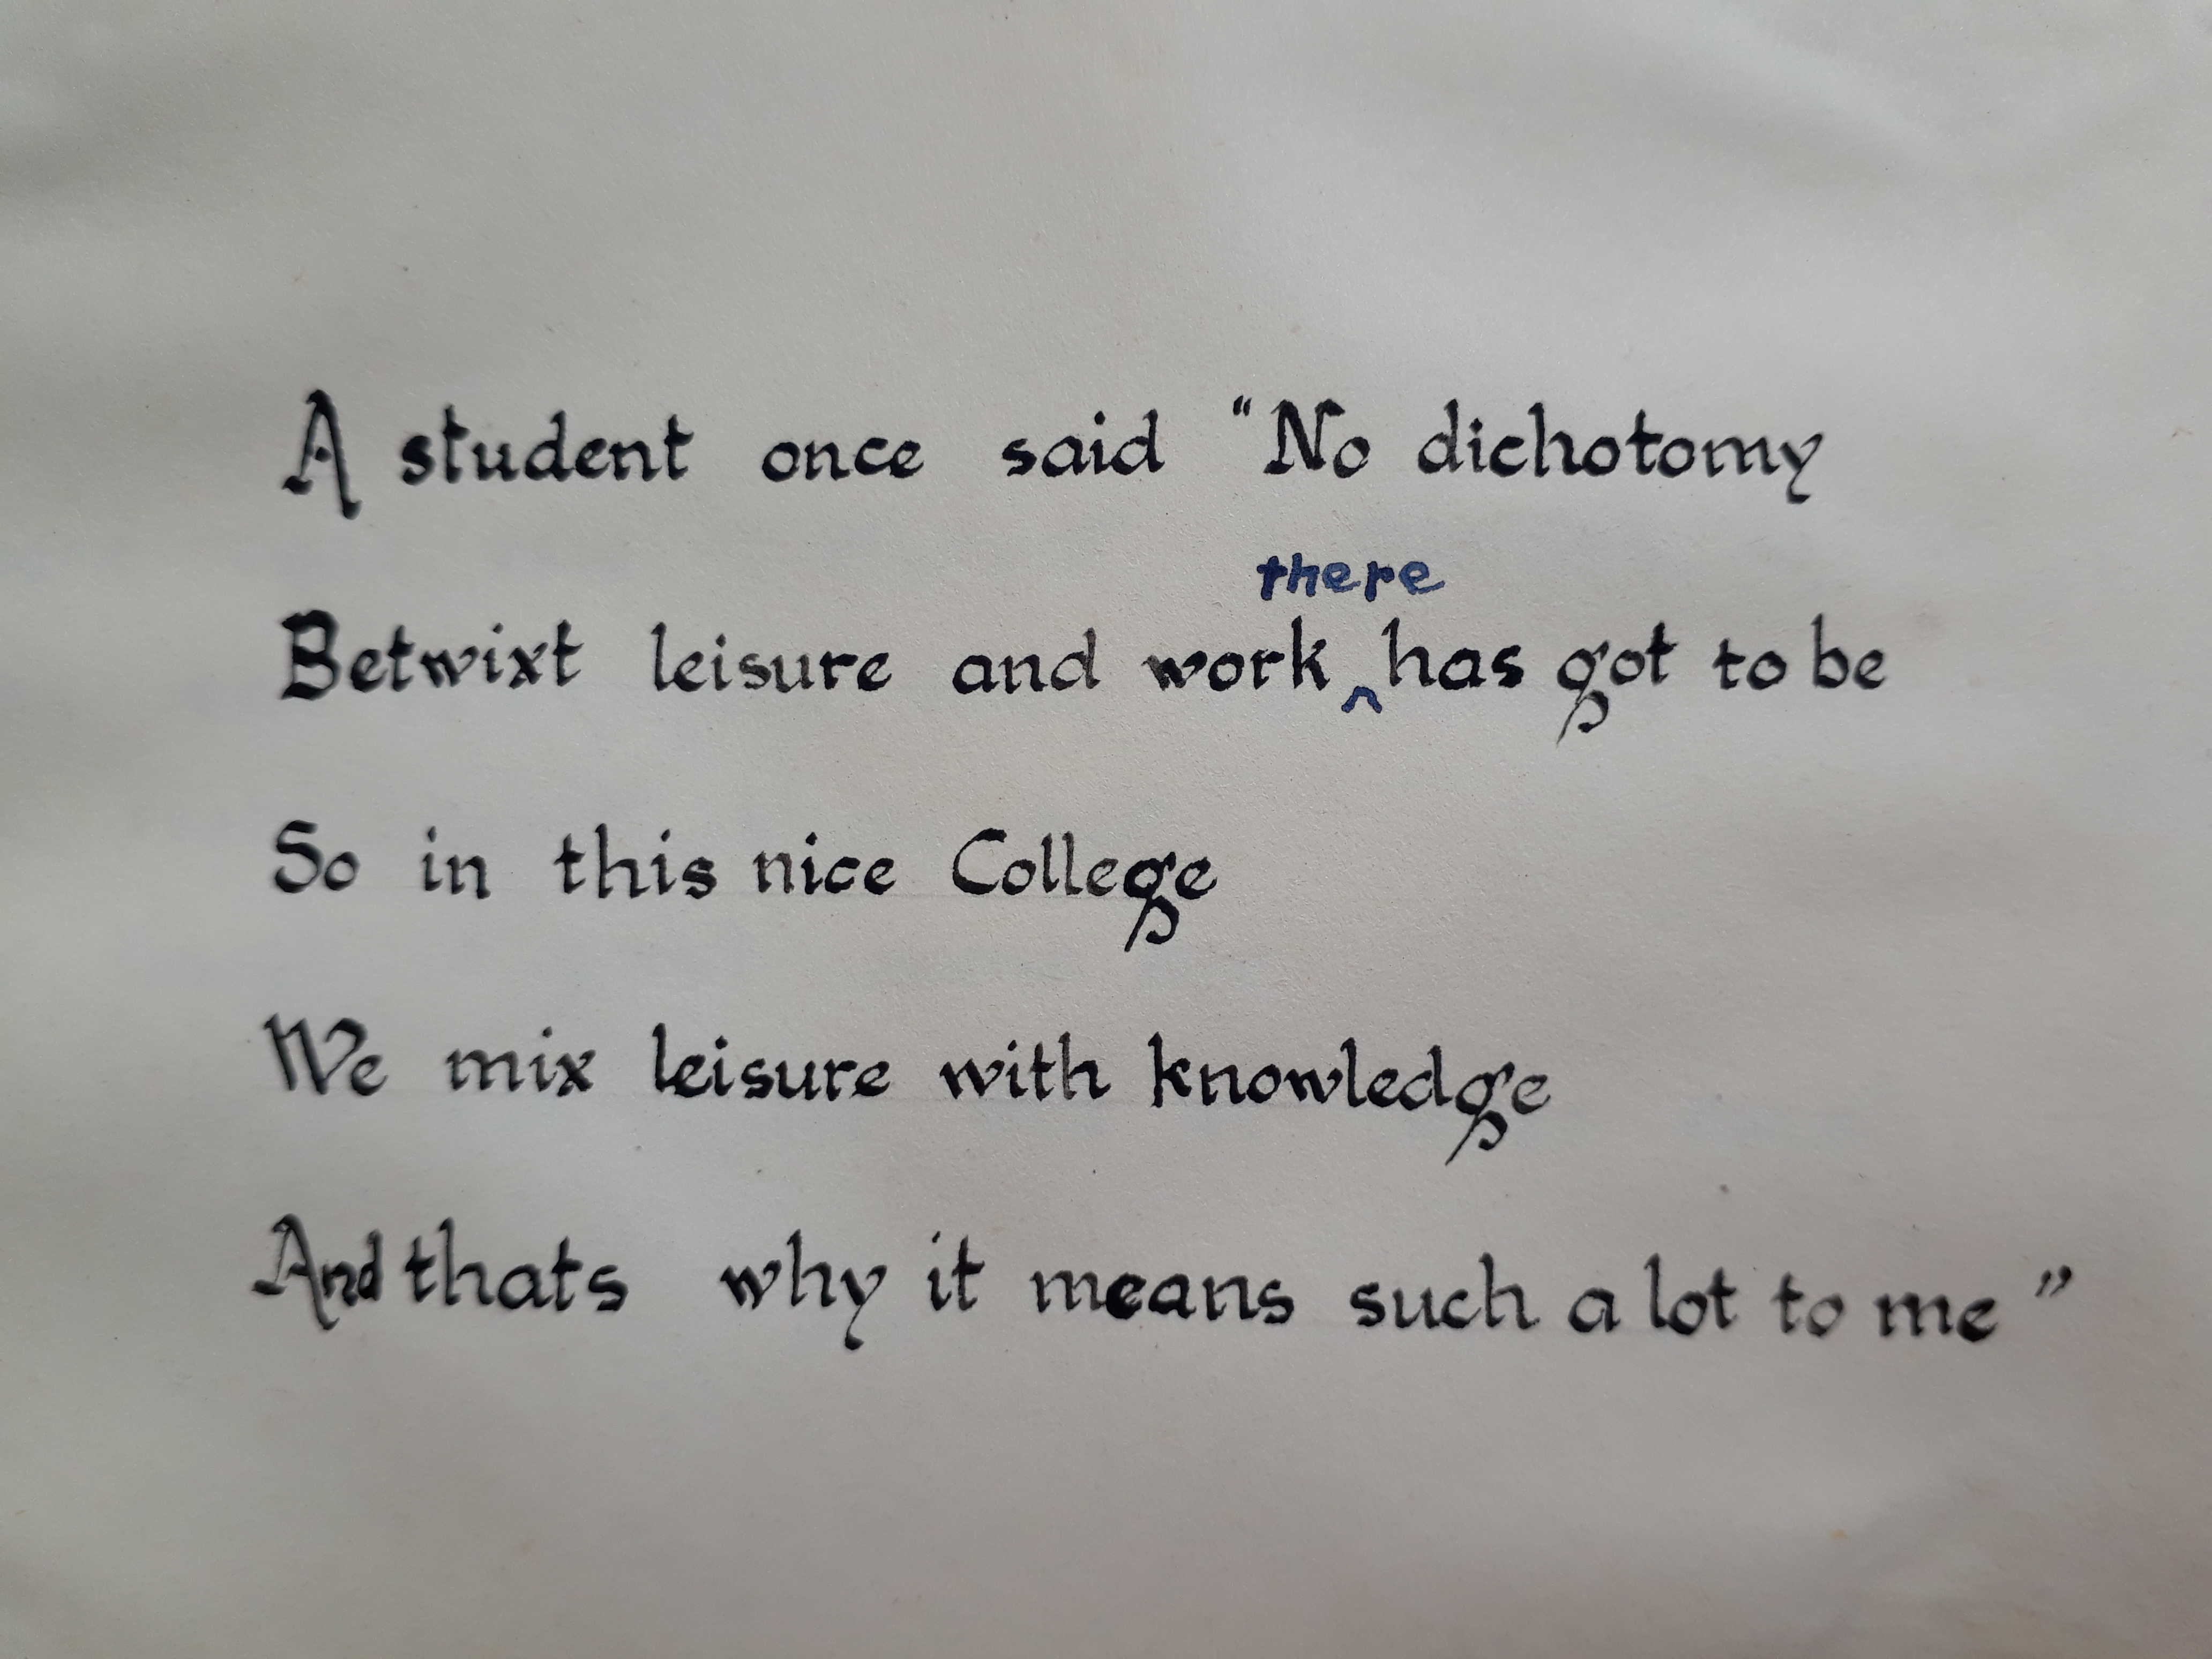 A student once said "No dichotomy
Betwixt leisure and work there has got to be
So in this nice College
We mix leisure with knowledge
And thats why it means such a lot to me"